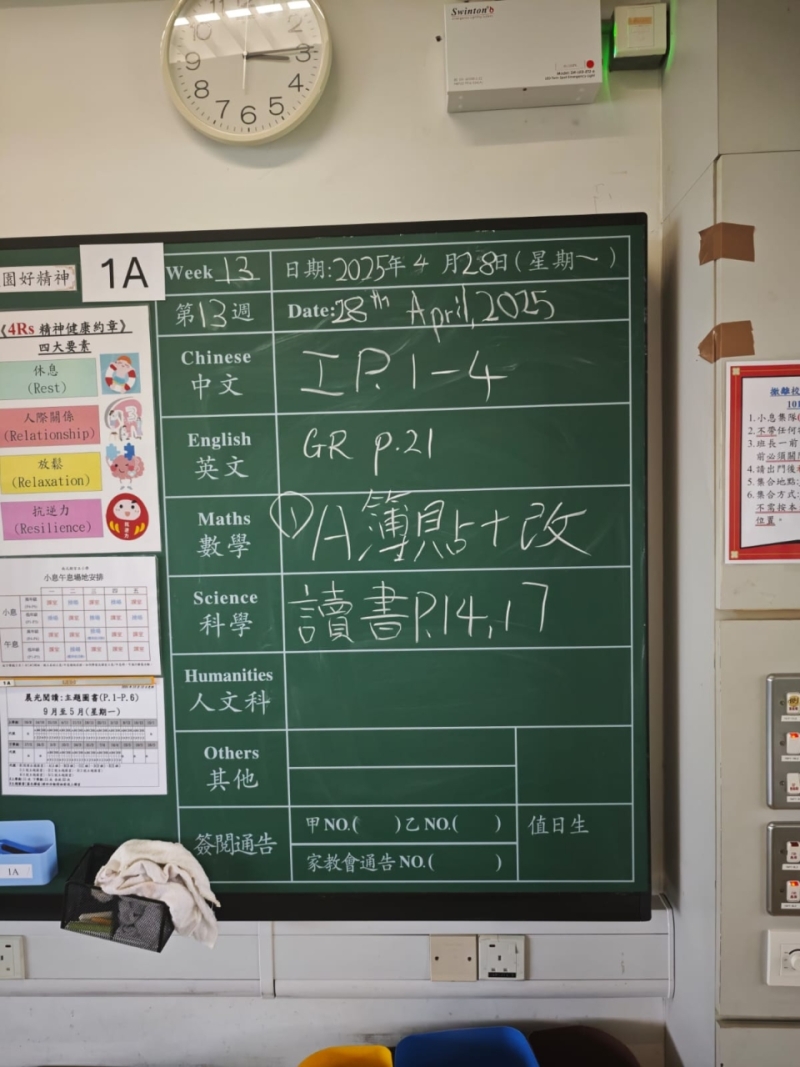 11 12 1
2
3
4
5
6
7
8
9
Swinton
園好精神
1A
Week 13
日期:2025年 4 月28日(星期一)
第13週
Date:28th April, 2025
《4Rs 精神健康約章》
四大要素
休息
(Rest)
人際關係
(Relationship)
放鬆
(Relaxation)
抗逆力
(Resilience)
Chinese
中文
工 P. 1-4
English
英文
GR p.21
Maths
數學
① A簿貼+改
Science
科學
讀書P.14,17
Humanities
人文科
Others
其他
簽閱通告
甲NO.( )乙NO.( )
值日生
家教會通告NO.( )
小息午息場地安排
一 二 三 四 五
小息
午息
晨光閱讀:主題圖書(P.1-P.6)
9月至5月(星期一)
1A
1.小息集隊
2.不帶任何
3.班長一前
前必須關
4.請出門後
5.集合地點:
6.集合方式:
不需按本
位置。